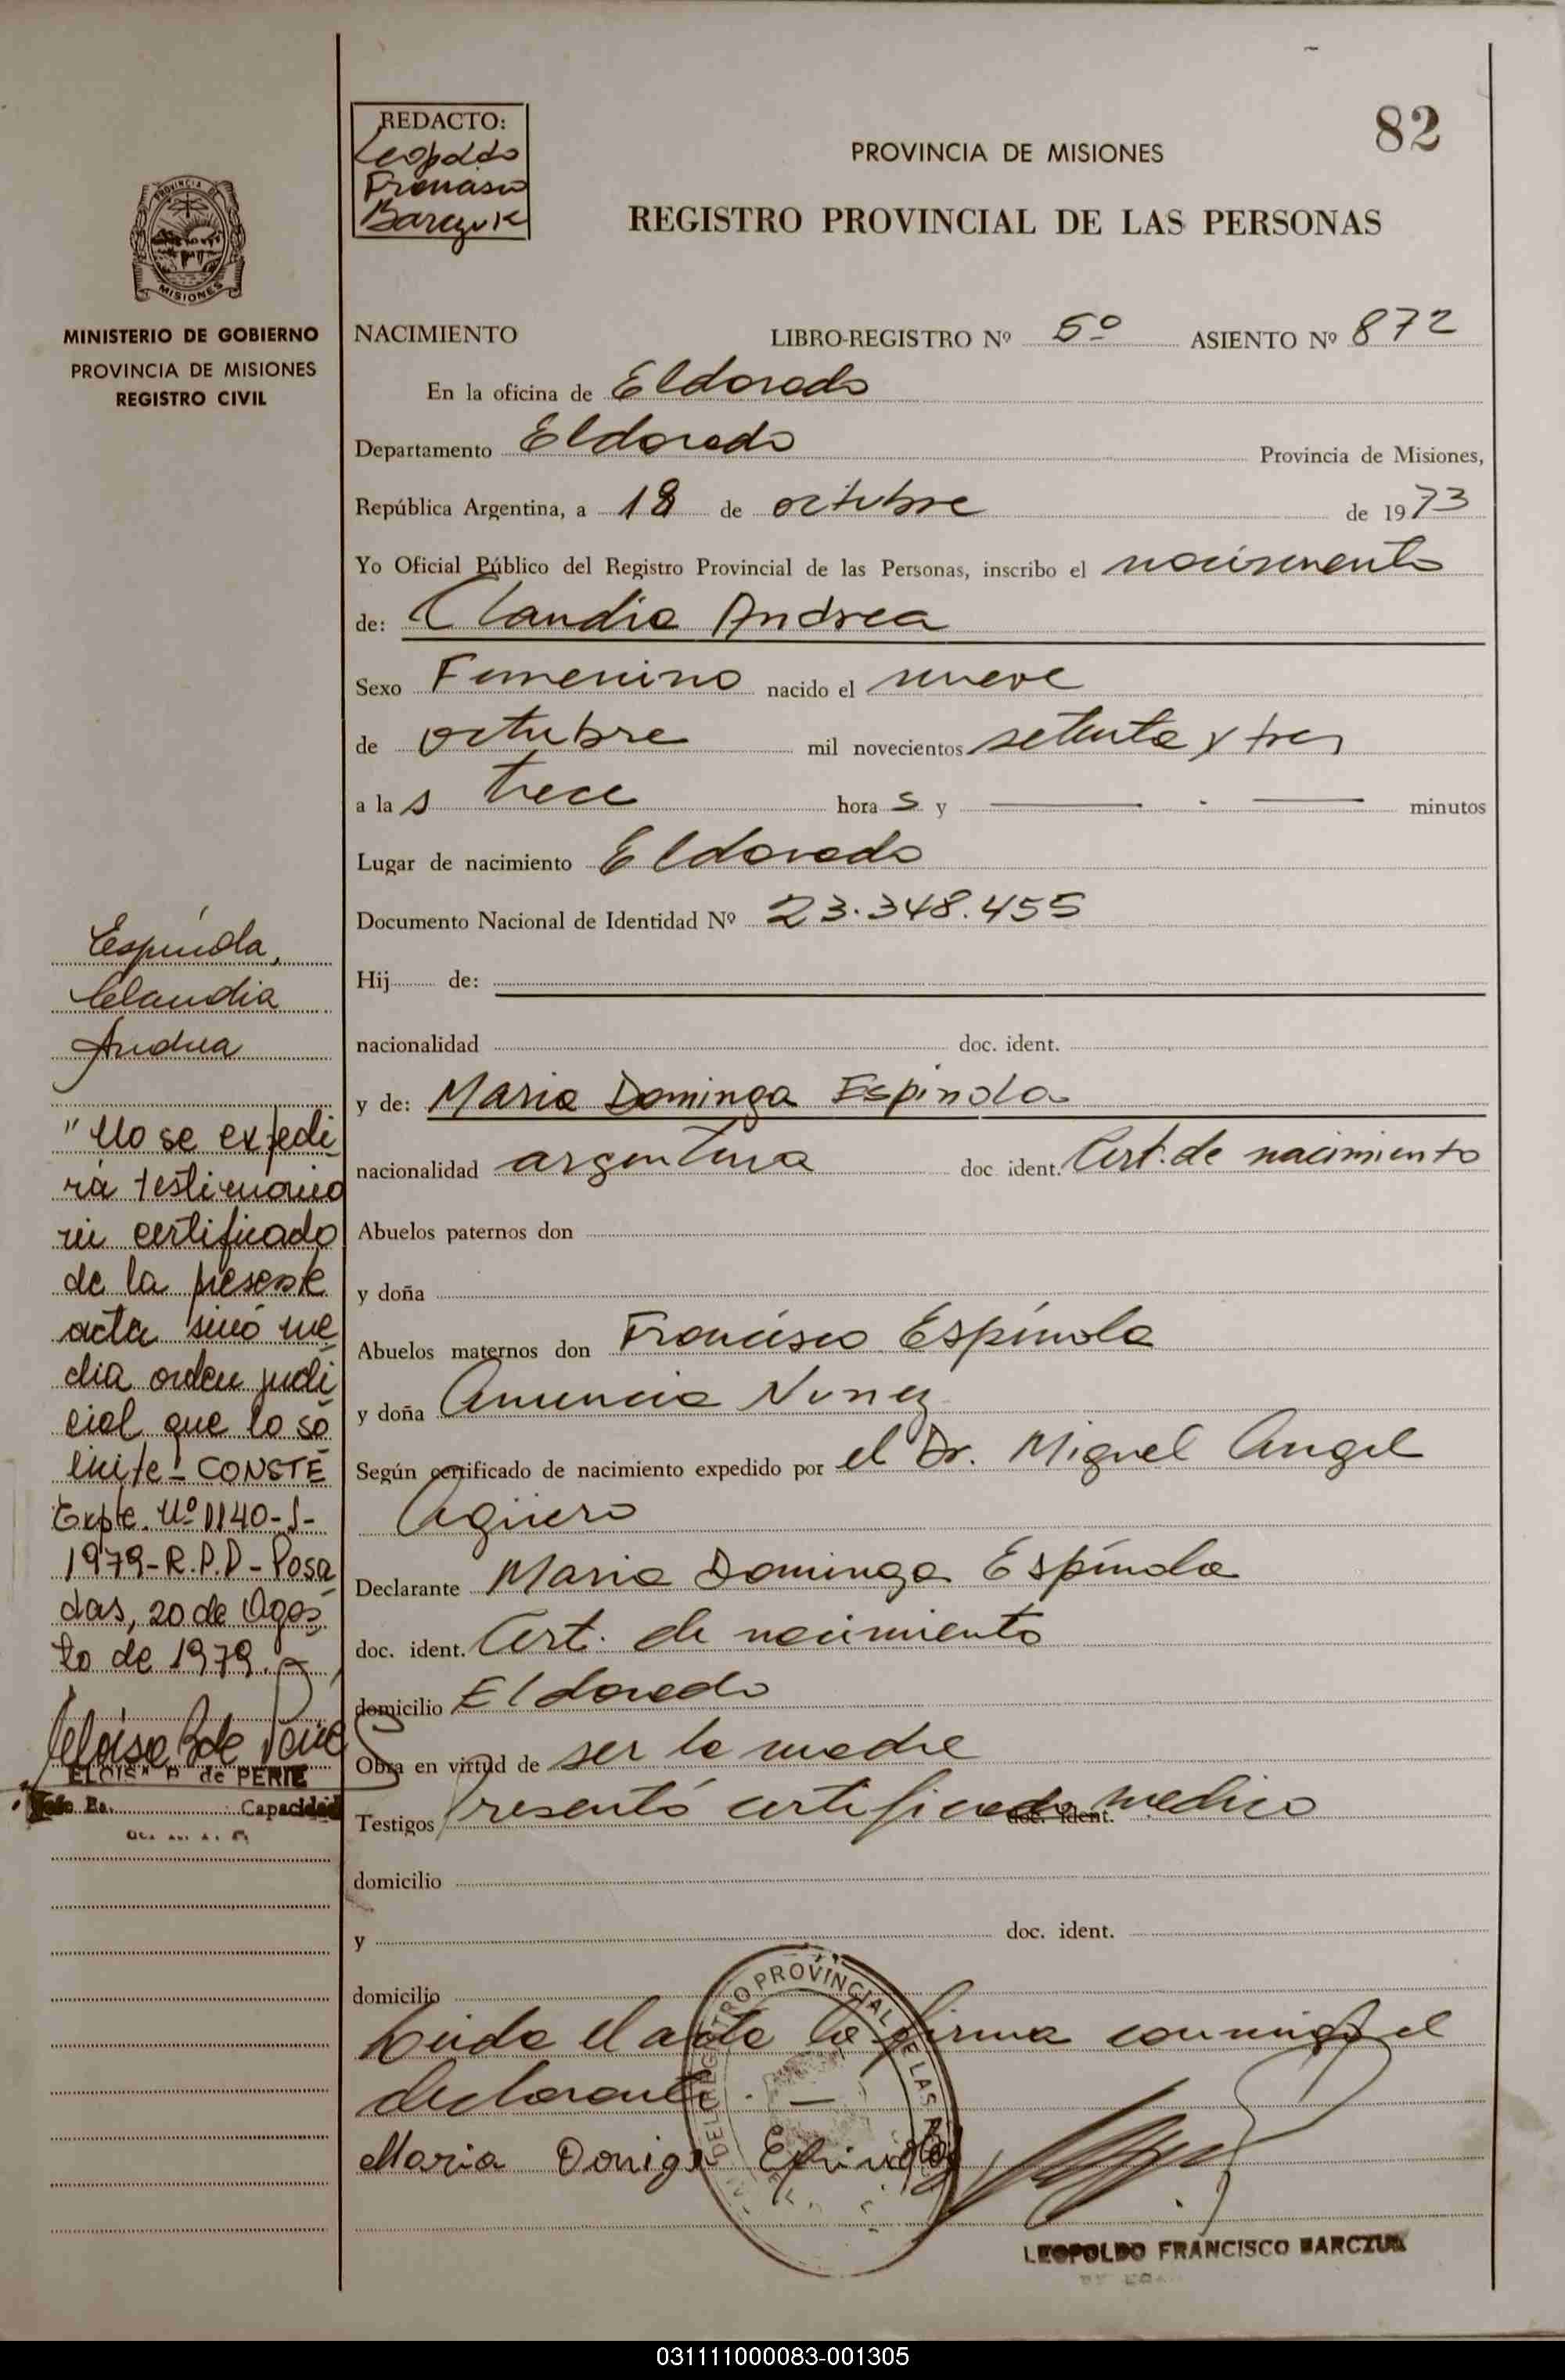 82
REDACTO:
Leopoldo
Francisco
Barczuk
PROVINCIA DE MISIONES
REGISTRO PROVINCIAL DE LAS PERSONAS
PROVINCIA DE
MISIONES
MINISTERIO DE GOBIERNO
PROVINCIA DE MISIONES
REGISTRO CIVIL
NACIMIENTO LIBRO-REGISTRO Nº 5º ASIENTO Nº 872
En la oficina de Eldorado
Departamento Eldorado Provincia de Misiones,
República Argentina, a 18 de octubre de 1973
Yo Oficial Público del Registro Provincial de las Personas, inscribo el nacimiento
de: Claudia Andrea
Sexo Femenino nacido el nueve
de octubre mil novecientos setenta y tres
a las trece horas y minutos
Lugar de nacimiento Eldorado
Documento Nacional de Identidad Nº 23.348.455
Hij de:
nacionalidad doc. ident.
y de: Maria Dominga Espinola
nacionalidad argentina doc ident. Cert. de nacimiento
Abuelos paternos don
y doña
Abuelos maternos don Francisco Espínola
y doña Anuncia Nunez
Según certificado de nacimiento expedido por el Dr. Miguel Angel
Agüero
Declarante Maria Dominga Espínola
doc. ident. Cert. de nacimiento
domicilio Eldorado
Obra en virtud de ser la madre
Testigos Presentó certificado medico doc. ident.
domicilio
y doc. ident.
domicilio
Leída el acta la firma conmigo el
declarante. —
Maria Doniga Epinola
LEOPOLDO FRANCISCO BARCZUK
REGISTRO PROVINCIAL DE LAS
Espíndola,
Claudia
Andrea
"No se expedi
rá testimonio
ni certificado
de la presente
acta sinó me
dia orden judi
cial que lo so
licite" - CONSTE
Expte. Nº 1140-S-
1979-R.P.D-Posa
das, 20 de Agos
to de 1979.
Eloisa P. de Perié
ELOISA P. de PERIE
Jefe Es. Capacidad
031111000083-001305